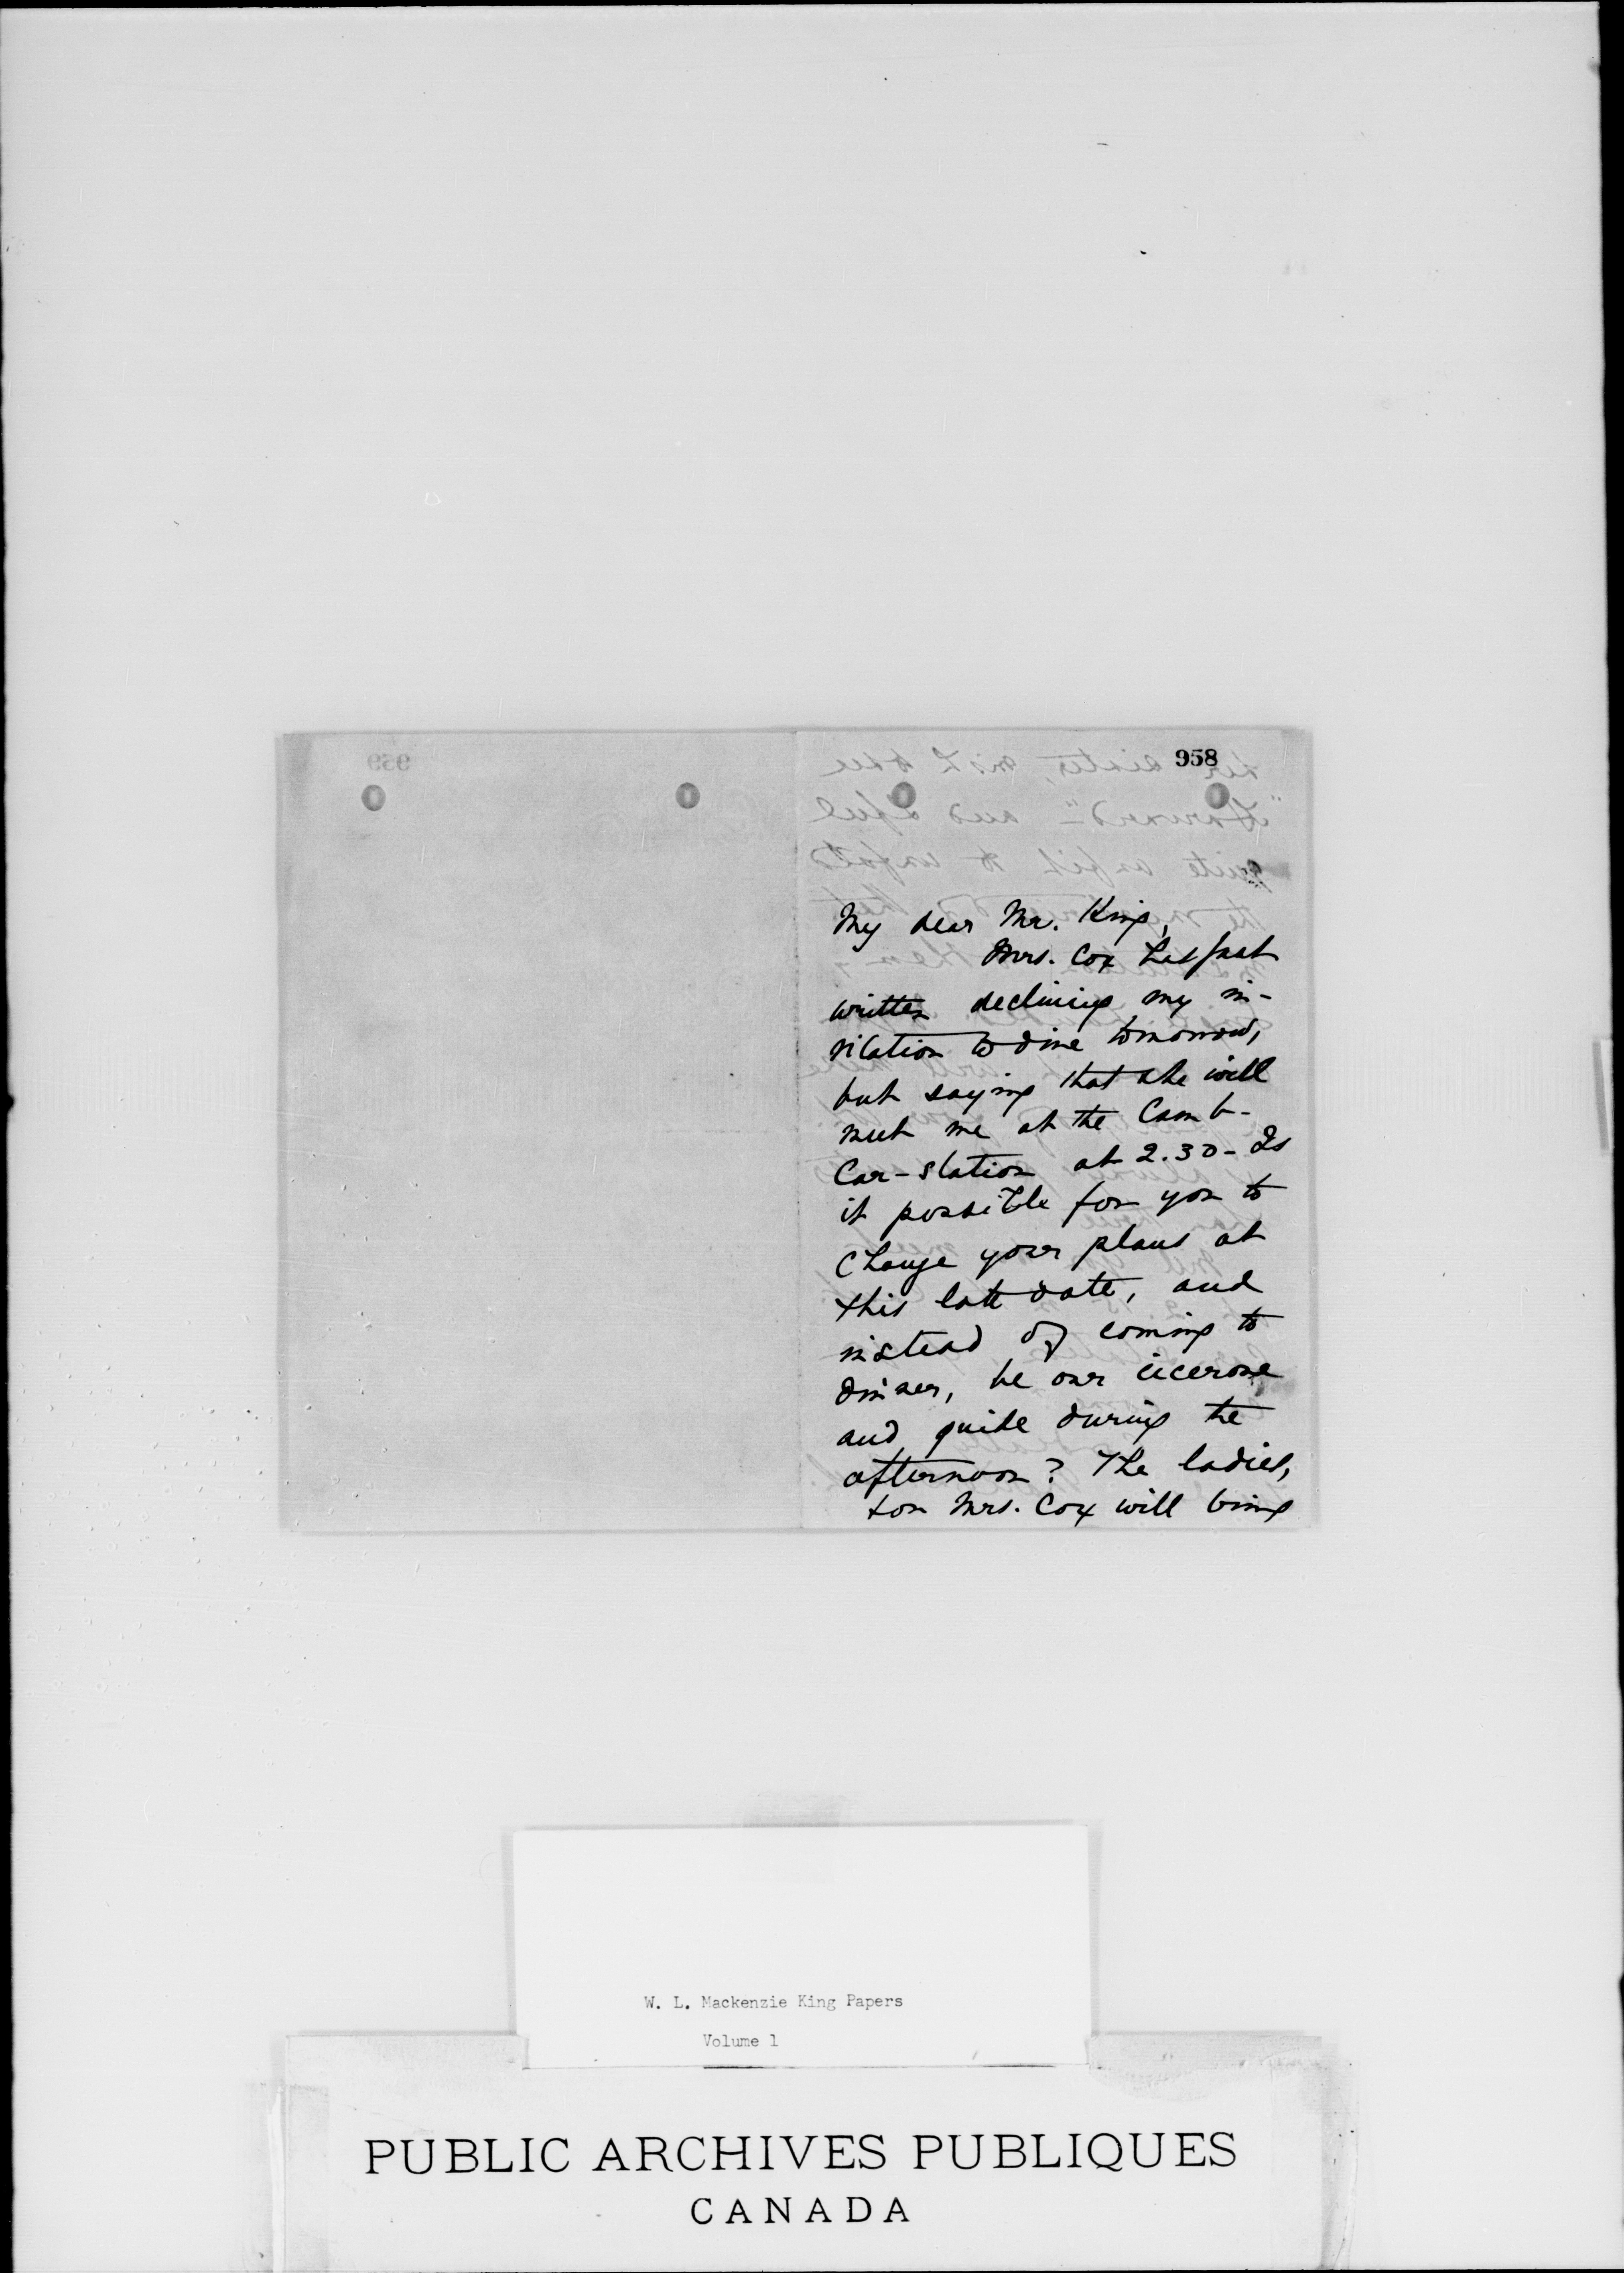 958
My dear Mr. King,
Mrs. Cox has just
written declining my in-
vitation to dine tomorrow,
but saying that she will
meet me at the Camb-
Car-station at 2.30 - Is
it possible for you to
change your plans at
this late date, and
instead of coming to
dinner, be our cicerone
and guide during the
afternoon? The ladies,
for Mrs. Cox will bring
W. L. Mackenzie King Papers
Volume 1
PUBLIC ARCHIVES PUBLIQUES
CANADA